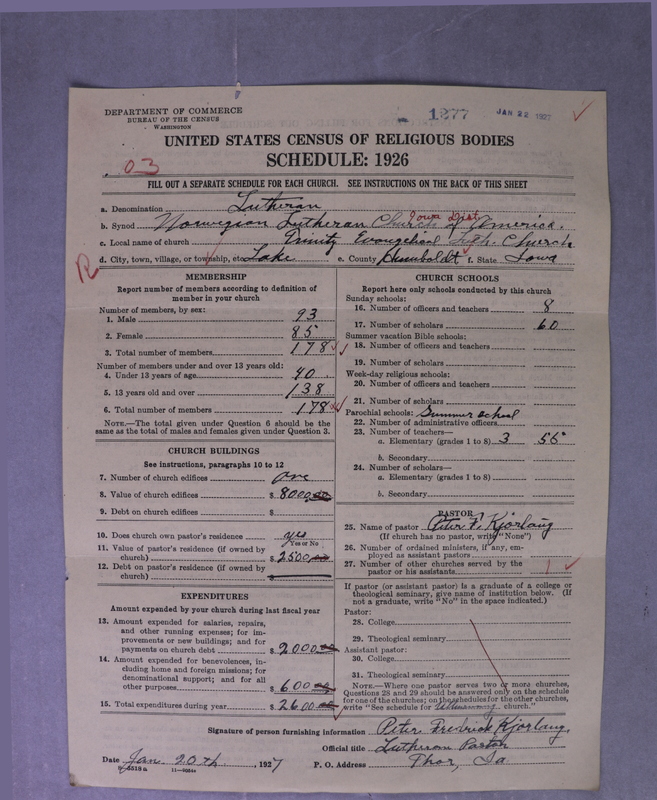 DEPARTMENT OF COMMERCE
BUREAU OF THE CENSUS
WASHINGTON
1277
JAN 22 1927
UNITED STATES CENSUS OF RELIGIOUS BODIES
SCHEDULE: 1926
03
FILL OUT A SEPARATE SCHEDULE FOR EACH CHURCH. SEE INSTRUCTIONS ON THE BACK OF THIS SHEET
a. Denomination Lutheran
Iowa Dist
b. Synod Norwegian Lutheran Church of America.
c. Local name of church Trinity Evangelical Luth. Church
d. City, town, village, or township, etc. Lake e. County Humboldt f. State Iowa
R
MEMBERSHIP
Report number of members according to definition of
member in your church
Number of members, by sex:
1. Male 93
2. Female 85
3. Total number of members 178
Number of members under and over 13 years old:
4. Under 13 years of age 40
5. 13 years old and over 138
6. Total number of members 178
NOTE.—The total given under Question 6 should be
the same as the total of males and females given under Question 3.
CHURCH BUILDINGS
See instructions, paragraphs 10 to 12
7. Number of church edifices one
8. Value of church edifices $ 8000.00
9. Debt on church edifices $
10. Does church own pastor's residence yes
Yes or No
11. Value of pastor's residence (if owned by
church) $ 2500.00
12. Debt on pastor's residence (if owned by
church)
EXPENDITURES
Amount expended by your church during last fiscal year
13. Amount expended for salaries, repairs,
and other running expenses; for im-
provements or new buildings; and for
payments on church debt $ 2000.00
14. Amount expended for benevolences, in-
cluding home and foreign missions; for
denominational support; and for all
other purposes $ 600.00
15. Total expenditures during year $ 2600.00
CHURCH SCHOOLS
Report here only schools conducted by this church
Sunday schools:
16. Number of officers and teachers 8
17. Number of scholars 60
Summer vacation Bible schools:
18. Number of officers and teachers
19. Number of scholars
Week-day religious schools:
20. Number of officers and teachers
21. Number of scholars
Parochial schools: Summer school
22. Number of administrative officers
23. Number of teachers—
a. Elementary (grades 1 to 8) 3 56
b. Secondary
24. Number of scholars—
a. Elementary (grades 1 to 8)
b. Secondary
PASTOR
25. Name of pastor Peter F. Kjorlaug
(If church has no pastor, write "None")
26. Number of ordained ministers, if any, em-
ployed as assistant pastors
27. Number of other churches served by the
pastor or his assistants 1
If pastor (or assistant pastor) is a graduate of a college or
theological seminary, give name of institution below. (If
not a graduate, write "No" in the space indicated.)
Pastor:
28. College
29. Theological seminary
Assistant pastor:
30. College
31. Theological seminary
NOTE.—Where one pastor serves two or more churches,
Questions 28 and 29 should be answered only on the schedule
for one of the churches; on the schedules for the other churches,
write "See schedule for church."
Signature of person furnishing information Peter Fredrick Kjorlaug.
Official title Lutheran Pastor
Date Jan. 20th, 1927 P. O. Address Thor, Ia.